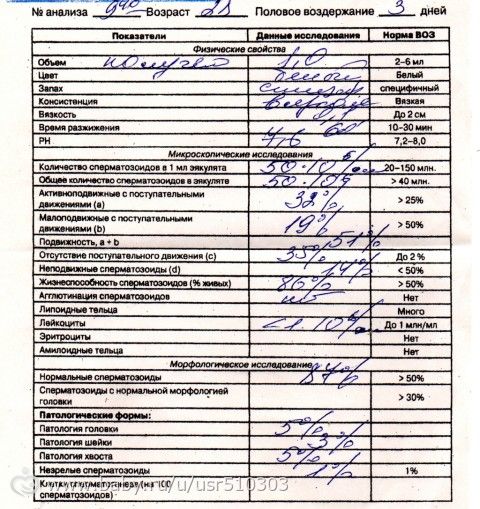 № анализа 940 Возраст 28 Половое воздержание 3 дней
Показатели Данные исследования Норма ВОЗ
Физические свойства
Объем 1,0 2–6 мл
Цвет белый Белый
Запах специф специфичный
Консистенция Вязкая
Вязкость До 2 см
Время разжижения 60 10–30 мин
PH 7,6 7,2–8,0
Микроскопические исследования
Количество сперматозоидов в 1 мл эякулята 50·10⁶ 20–150 млн.
Общее количество сперматозоидов в эякуляте 50·10⁶ > 40 млн.
Активноподвижные с поступательными
движениями (a) 32% > 25%
Малоподвижные с поступательными
движениями (b) 19% > 50%
Подвижность, a + b 51%
Отсутствие поступательного движения (c) 35% До 2 %
Неподвижные сперматозоиды (d) 14% < 50%
Жизнеспособность сперматозоидов (% живых) 86% > 50%
Агглютинация сперматозоидов нет Нет
Липоидные тельца Много
Лейкоциты <1·10⁶ До 1 млн/мл
Эритроциты Нет
Амилоидные тельца Нет
Морфологическое исследование
Нормальные сперматозоиды 87% > 50%
Сперматозоиды с нормальной морфологией
головки > 30%
Патологические формы:
Патология головки 5%
Патология шейки 3%
Патология хвоста 5%
Незрелые сперматозоиды 1% 1%
Клетки сперматогенеза (на 100
сперматозоидов)
www.baby.ru/u/usr510303